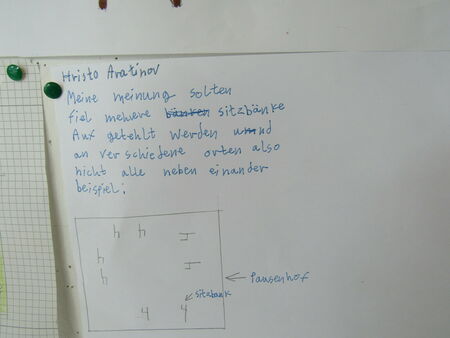 Hristo Aratinov
Meine meinung solten
fiel mehere bänken sitzbänke
Auf getehlt werden und
an verschiedene orten also
nicht alle neben einander
beispiel:
Pausenhof
sitzbank